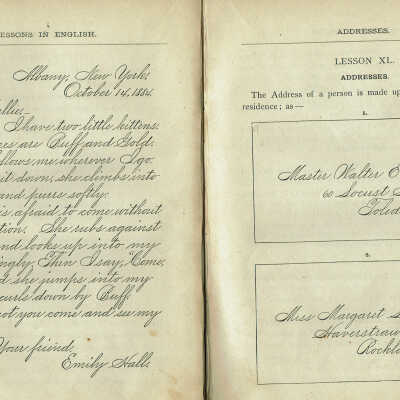 LESSONS IN ENGLISH.
Albany, New York,
October 14, 1884.
I have two little kittens.
are Puff and Gold.
me wherever I go.
it down, she climbs into
and purrs softly.
is afraid to come without
She rubs against
and looks up into my
Then I say, "Come,"
she jumps into my
curls down by Puff.
not you come and see my
Your friend,
Emily Hall.
ADDRESSES.
LESSON XL.
ADDRESSES.
The Address of a person is made up
residence; as—
1.
Master Walter
60 Locust
2.
Miss Margaret
Haverstraw